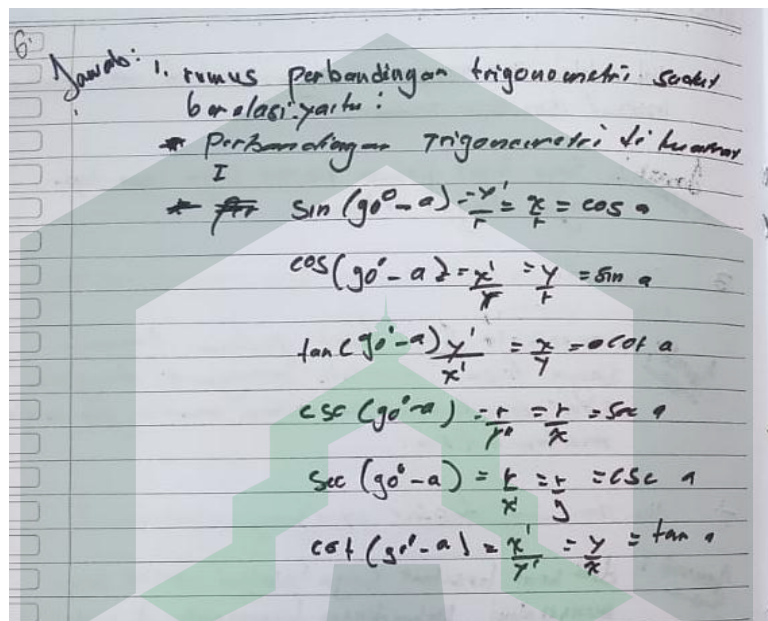 6.
Jawab: 1. rumus perbandingan trigonometri sudut
berelasi yaitu :
* Perbandingan Trigonometri di kuadran
I
* sin (90° - a) = y'/r = x/r = cos a
cos (90° - a) = x'/r = y/r = sin a
tan (90° - a) y'/x' = x/y = cot a
csc (90° - a) = r/y' = r/x = sec a
sec (90° - a) = r/x = r/y = csc a
cot (90° - a) = x'/y' = y/x = tan a